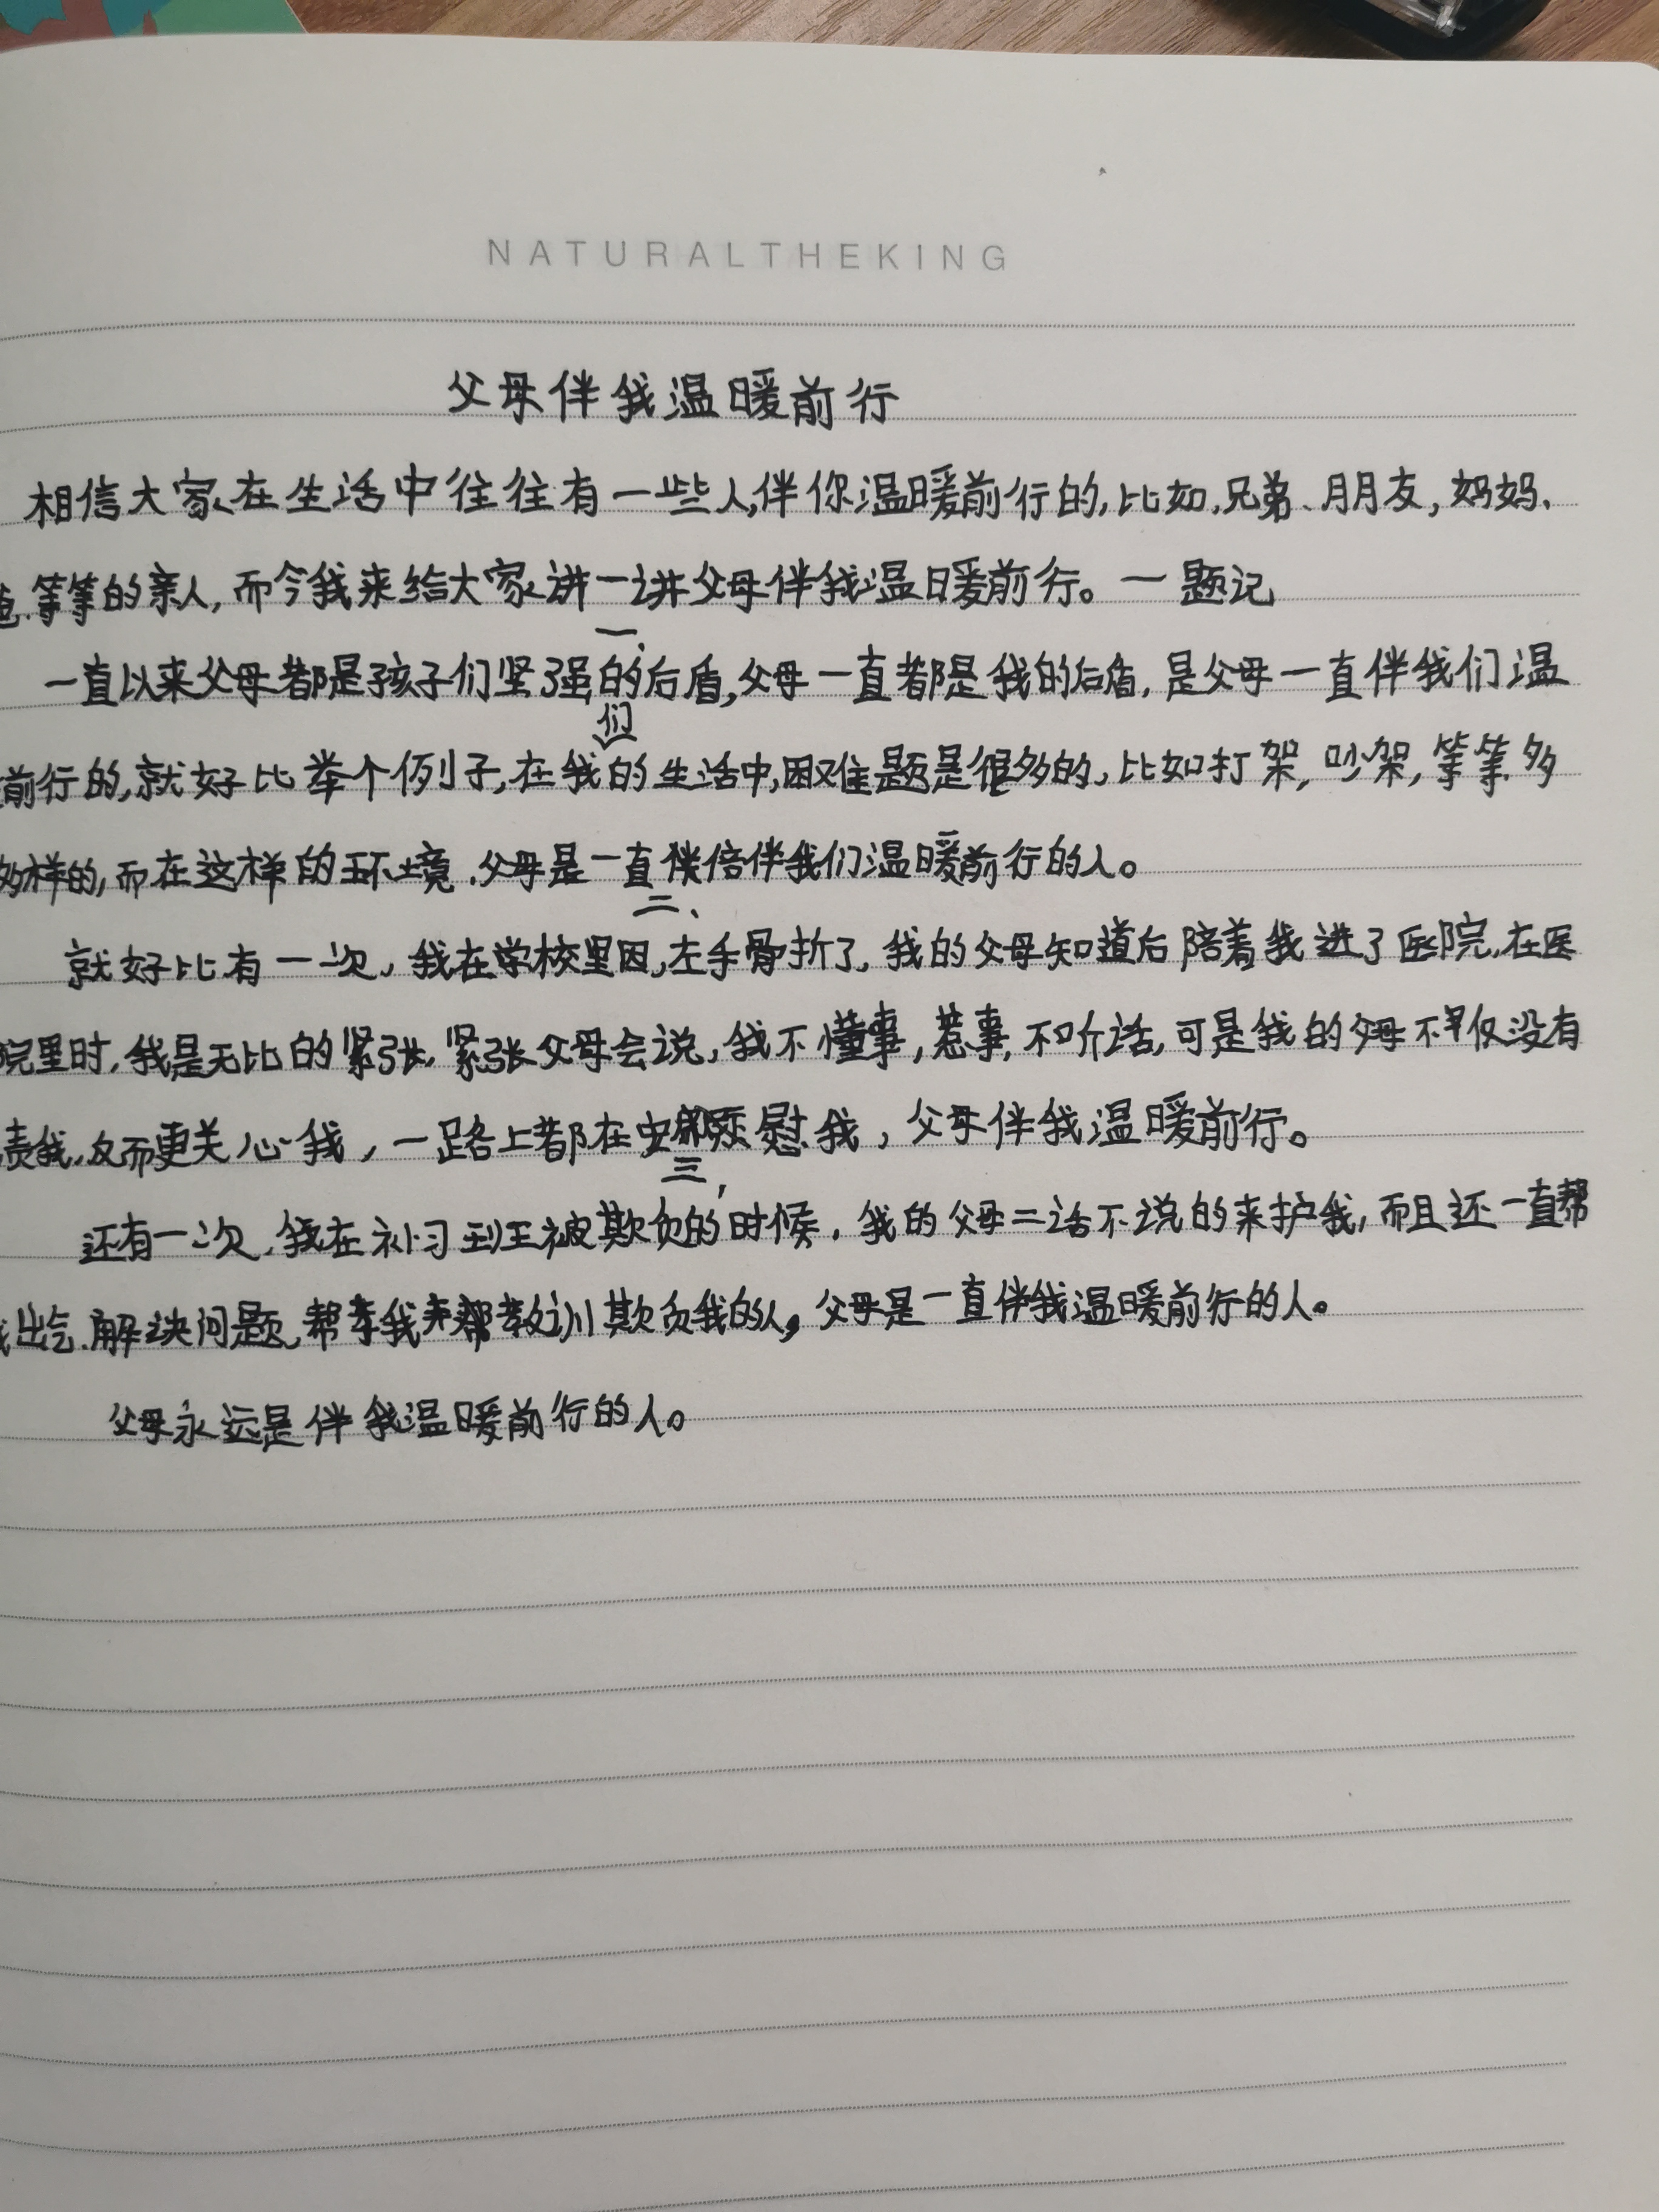 NATURALTHEKING
父母伴我温暖前行
相信大家在生活中往往有一些人,伴你温暖前行的,比如,兄弟、朋友,妈妈、
等等的亲人,而今我来给大家讲一讲父母伴我温暖前行。一题记
一、
一直以来父母都是孩子们坚强的后盾,父母一直都是我的后盾,是父母一直伴我们温
们
前行的,就好比举个例子,在我的生活中,困难题是很多的,比如打架,吵架,等等.多
多样的,而在这样的环境,父母是一直陪伴我们温暖前行的人。
二、
就好比有一次,我在学校里因,左手骨折了,我的父母知道后陪着我进了医院,在医
院里时,我是无比的紧张,紧张父母会说,我不懂事,惹事,不听话,可是我的父母不仅没有
责我,反而更关心我,一路上都在安慰我,父母伴我温暖前行。
三,
还有一次,我在补习到王被欺负的时候,我的父母二话不说的来护我,而且还一直帮
我出气.解决问题,帮我教训欺负我的人,父母是一直伴我温暖前行的人。
父母永远是伴我温暖前行的人。